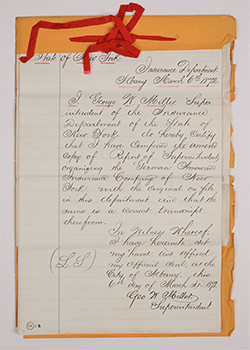 State of New York
Insurance Department
Albany March 6th 1872
I George W. Miller Super
intendent of the Insurance
Department of the State of
New York do hereby Certify
that I have Compared the annexed
Copy of Report of Superintendent
organizing the German American
Insurance Company of New
York with the Original on file
in this department and that the
same is a Correct transcript
therefrom
In Witness Whereof
I have hereunto set
my hand and affixed
my Official Seal, at the
City of Albany, this
6th day of March 1872
(L S)
Geo W. Miller
Superintendent